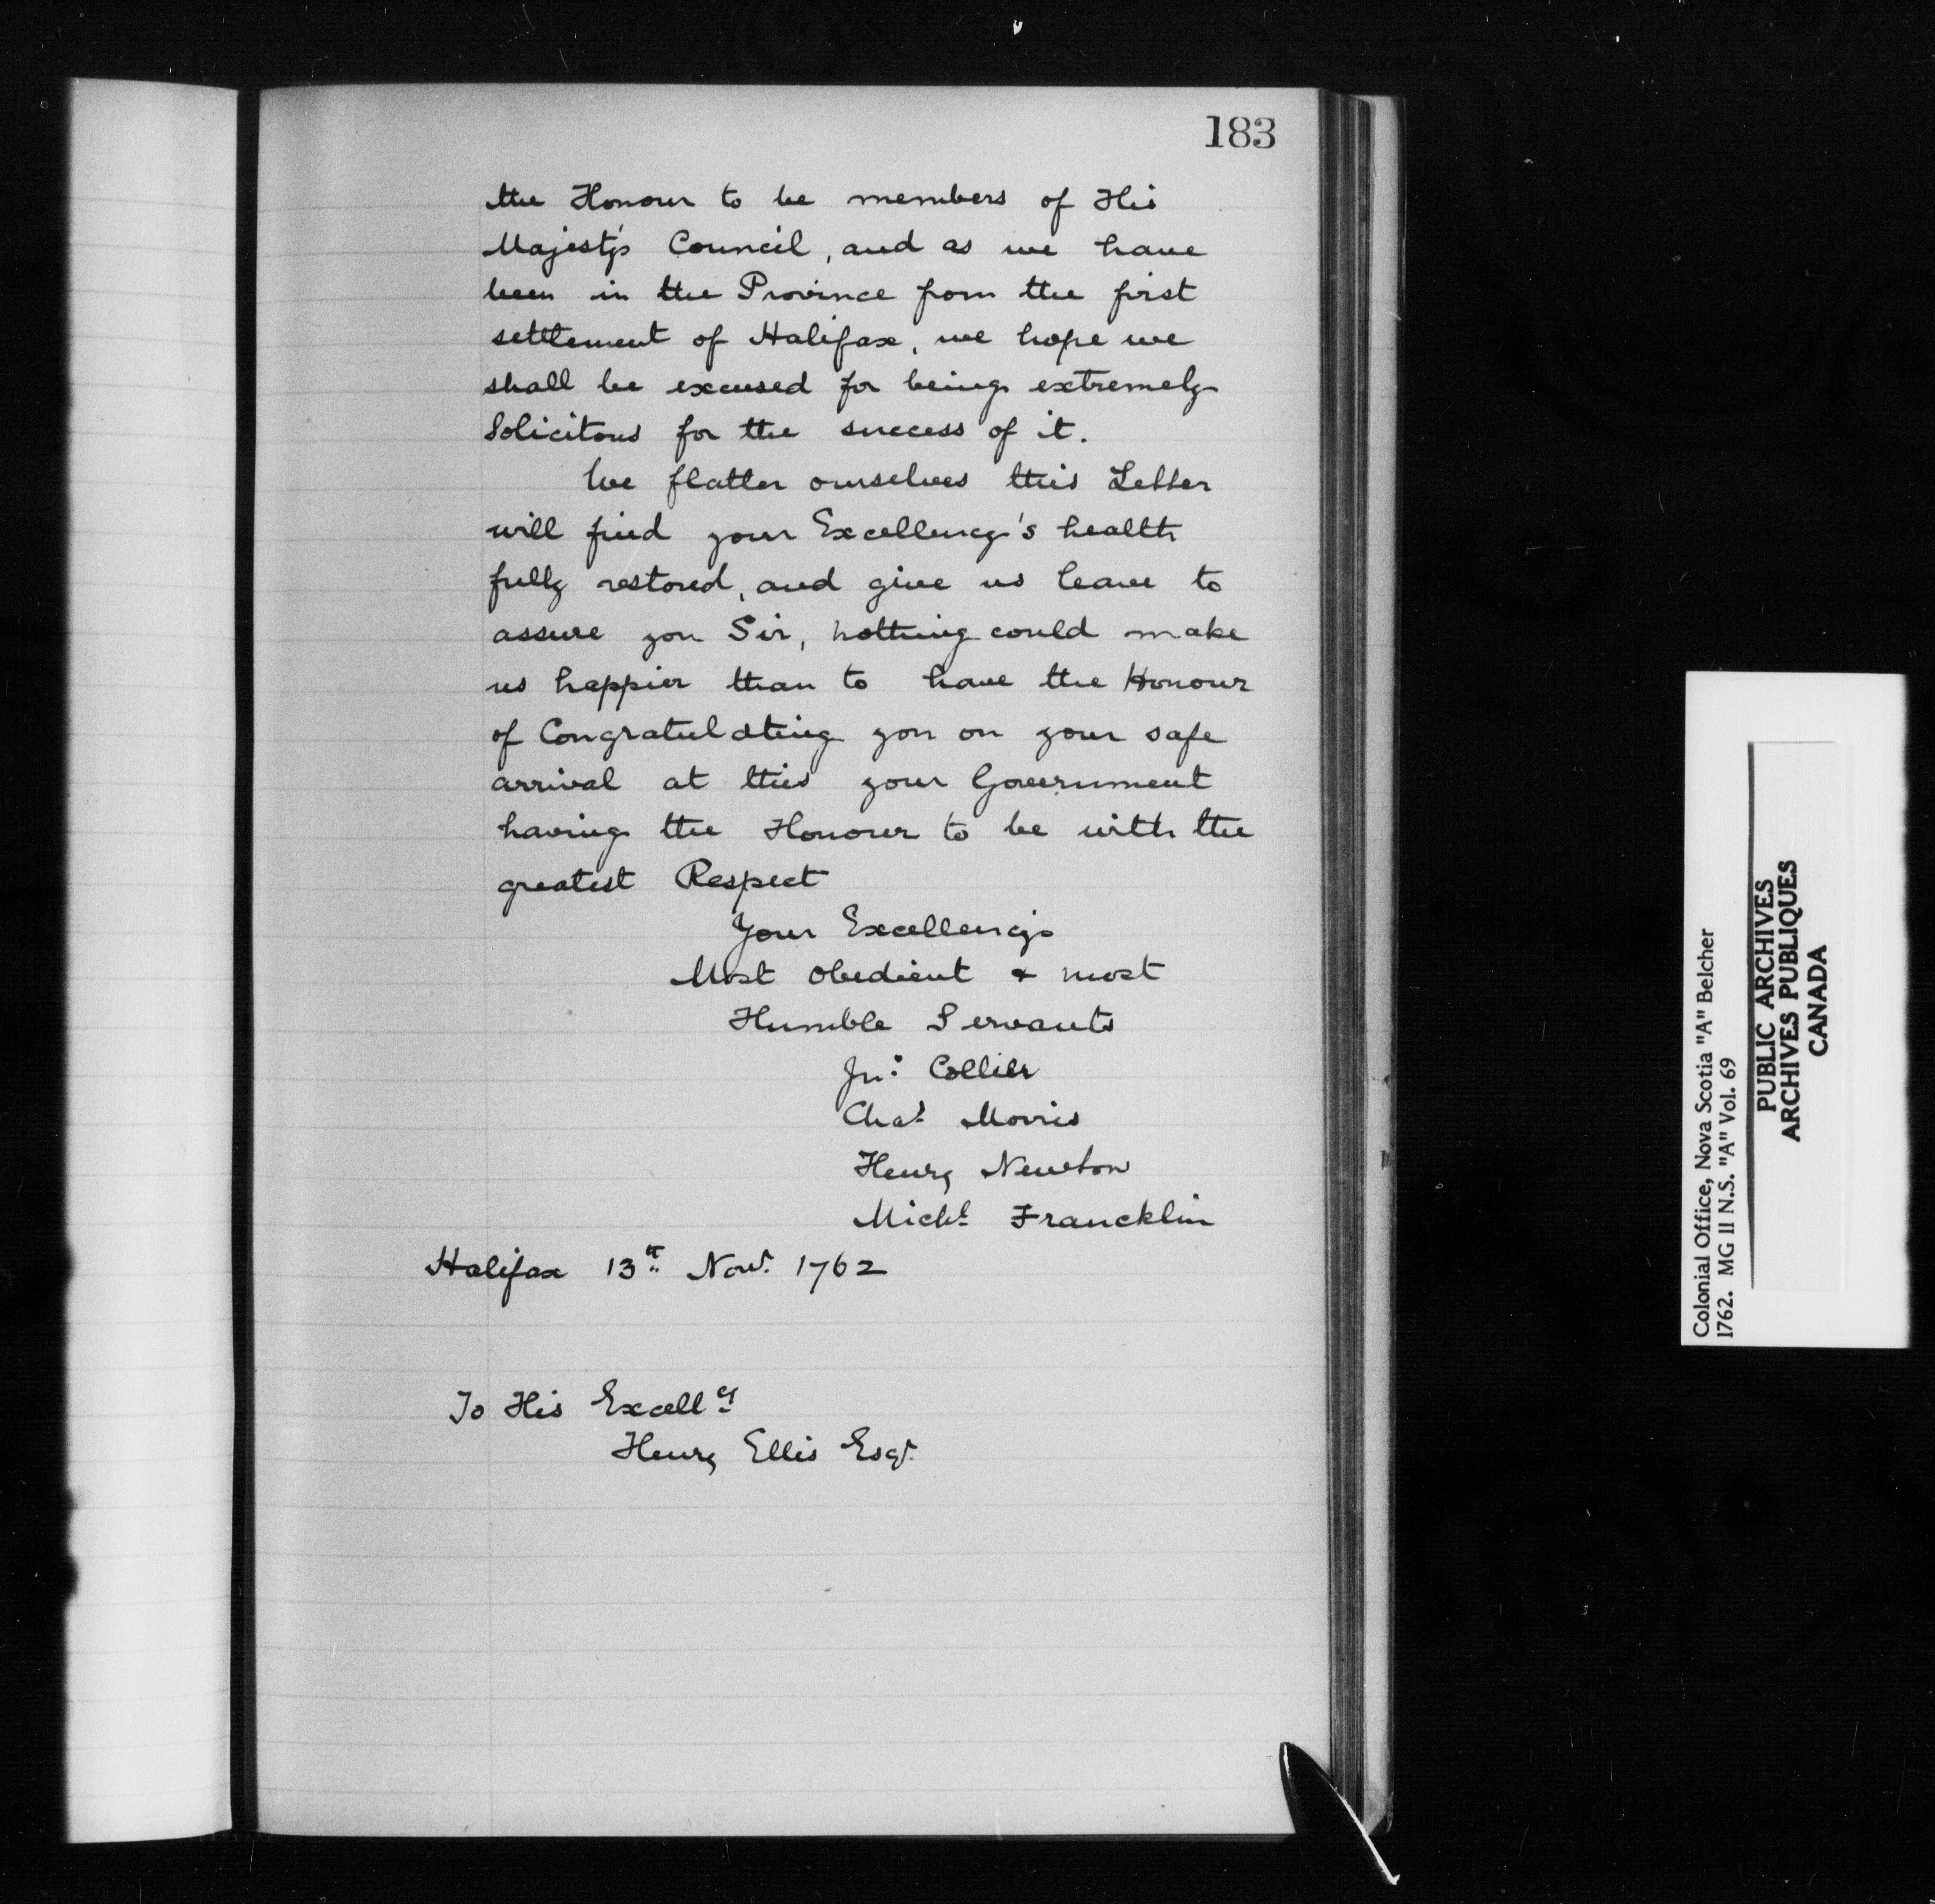 183
the Honour to be members of His
Majesty's Council, and as we have
been in the Province from the first
settlement of Halifax, we hope we
shall be excused for being extremely
Solicitous for the success of it.
We flatter ourselves this Letter
will find your Excellency's health
fully restored, and give us leave to
assure you Sir, nothing could make
us happier than to have the Honour
of Congratulating you on your safe
arrival at this your Government
having the Honour to be with the
greatest Respect
Your Excellencys
Most Obedient & most
Humble Servants
Jnº Collier
Chaˢ Morris
Henry Newton
Michˡ Francklin
Halifax 13ᵗʰ Novʳ 1762
To His Excellᶜʸ
Henry Ellis Esqʳ
Colonial Office, Nova Scotia "A" Belcher
1762. MG II N.S. "A" Vol. 69
PUBLIC ARCHIVES
ARCHIVES PUBLIQUES
CANADA